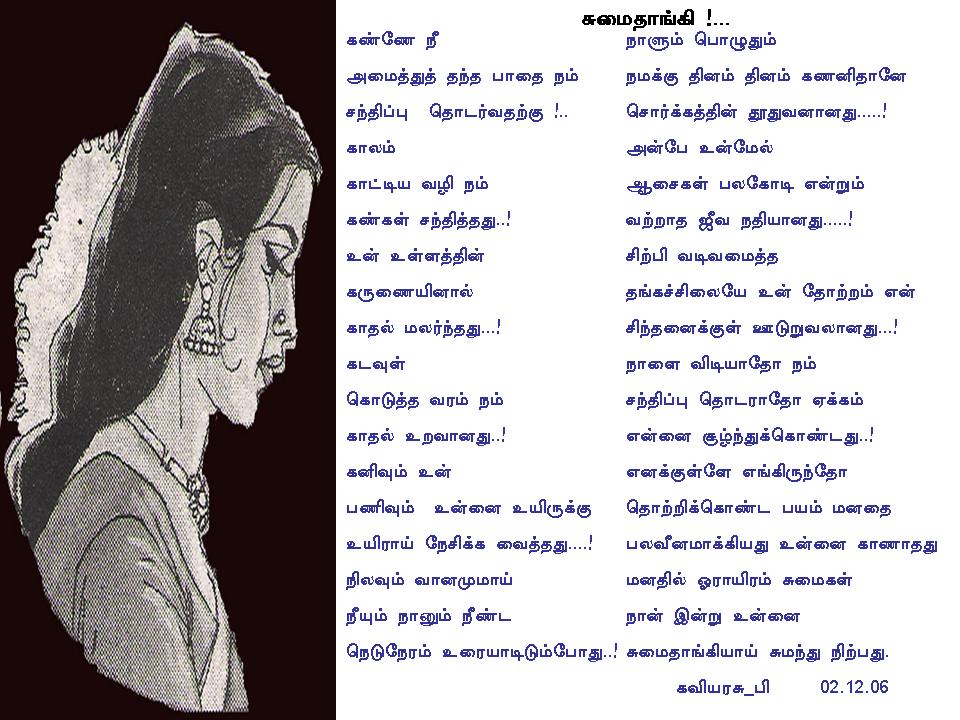 சுமைதாங்கி !...
கண்ணே நீ
அமைத்துத் தந்த பாதை நம்
சந்திப்பு தொடர்வதற்கு !..
காலம்
காட்டிய வழி நம்
கண்கள் சந்தித்தது..!
உன் உள்ளத்தின்
கருணையினால்
காதல் மலர்ந்தது...!
கடவுள்
கொடுத்த வரம் நம்
காதல் உறவானது..!
கனிவும் உன்
பணிவும் உன்னை உயிருக்கு
உயிராய் நேசிக்க வைத்தது....!
நிலவும் வானமுமாய்
நீயும் நானும் நீண்ட
நெடுநேரம் உரையாடிடும்போது..!
நாளும் பொழுதும்
நமக்கு தினம் தினம் கணனிதானே
சொர்க்கத்தின் தூதுவனானது.....!
அன்பே உன்மேல்
ஆசைகள் பலகோடி என்றும்
வற்றாத ஜீவ நதியானது.....!
சிற்பி வடிவமைத்த
தங்கச்சிலையே உன் தோற்றம் என்
சிந்தனைக்குள் ஊடுறுவலானது...!
நாளை விடியாதோ நம்
சந்திப்பு தொடராதோ ஏக்கம்
என்னை சூழ்ந்துக்கொண்டது..!
எனக்குள்ளே எங்கிருந்தோ
தொற்றிக்கொண்ட பயம் மனதை
பலவீனமாக்கியது உன்னை காணாதது
மனதில் ஓராயிரம் சுமைகள்
நான் இன்று உன்னை
சுமைதாங்கியாய் சுமந்து நிற்பது.
கவியரசு_பி 02.12.06